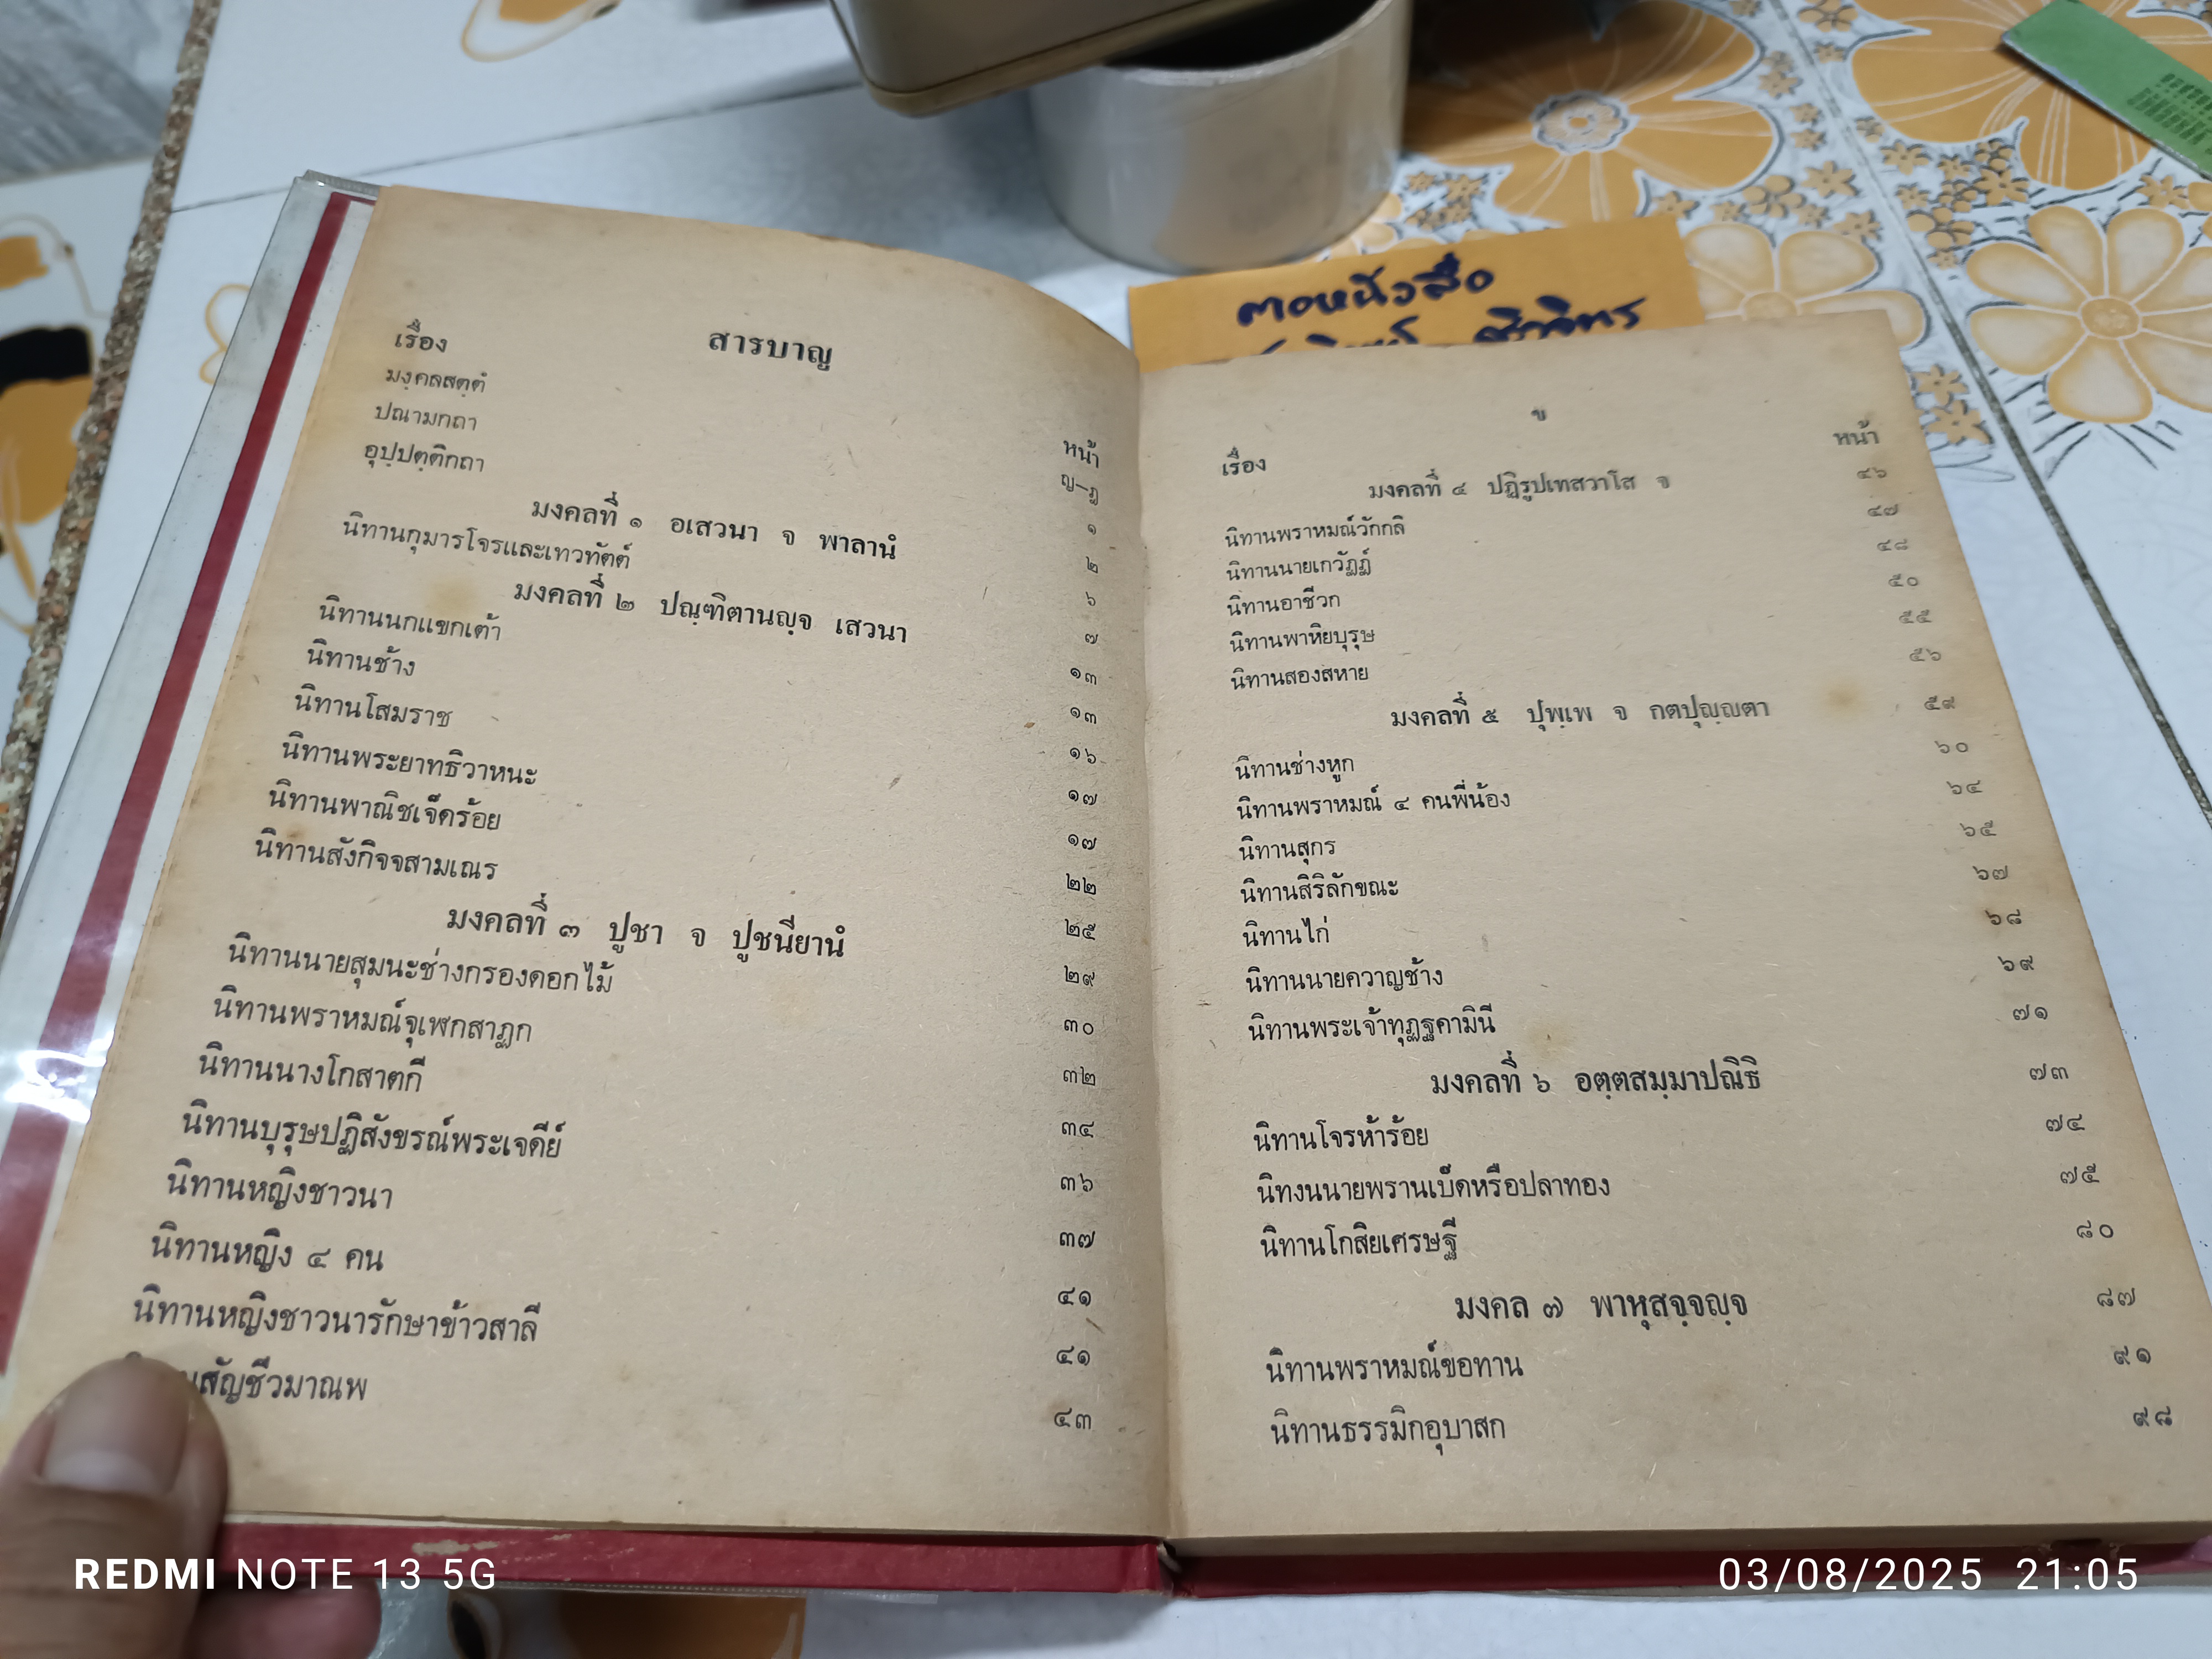 สารบาญ
เรื่อง หน้า
มงฺคลสตฺตํ ญ–ฎ
ปณามกถา ๑
อุปฺปตฺติกถา ๒
มงคลที่ ๑ อเสวนา จ พาลานํ ๖
นิทานกุมารโจรและเทวทัตต์ ๗
มงคลที่ ๒ ปณฺฑิตานญฺจ เสวนา ๑๓
นิทานนกแขกเต้า ๑๓
นิทานช้าง ๑๖
นิทานโสมราช ๑๗
นิทานพระยาทธิวาหนะ ๑๗
นิทานพาณิชเจ็ดร้อย ๒๒
นิทานสังกิจจสามเณร ๒๕
มงคลที่ ๓ ปูชา จ ปูชนียานํ ๒๙
นิทานนายสุมนะช่างกรองดอกไม้ ๓๐
นิทานพราหมณ์จุเฬกสาฎก ๓๒
นิทานนางโกสาตกี ๓๔
นิทานบุรุษปฏิสังขรณ์พระเจดีย์ ๓๖
นิทานหญิงชาวนา ๓๗
นิทานหญิง ๔ คน ๔๑
นิทานหญิงชาวนารักษาข้าวสาลี ๔๑
สัญชีวมาณพ ๔๓
ตอหนังสือ
ข
เรื่อง หน้า
มงคลที่ ๔ ปฏิรูปเทสวาโส จ ๔๖
นิทานพราหมณ์วักกลิ ๔๗
นิทานนายเกวัฏฏ์ ๔๘
นิทานอาชีวก ๕๐
นิทานพาหิยบุรุษ ๕๕
นิทานสองสหาย ๕๖
มงคลที่ ๕ ปุพฺเพ จ กตปุญฺญตา ๕๙
นิทานช่างหูก ๖๐
นิทานพราหมณ์ ๔ คนพี่น้อง ๖๔
นิทานสุกร ๖๕
นิทานสิริลักขณะ ๖๗
นิทานไก่ ๖๘
นิทานนายควาญช้าง ๖๙
นิทานพระเจ้าทุฏฐคามินี ๗๑
มงคลที่ ๖ อตฺตสมฺมาปณิธิ ๗๓
นิทานโจรห้าร้อย ๗๔
นิทงนนายพรานเบ็ดหรือปลาทอง ๗๕
นิทานโกสิยเศรษฐี ๘๐
มงคล ๗ พาหุสจฺจญฺจ ๘๗
นิทานพราหมณ์ขอทาน ๙๑
นิทานธรรมิกอุบาสก ๙๘
REDMI NOTE 13 5G
03/08/2025 21:05